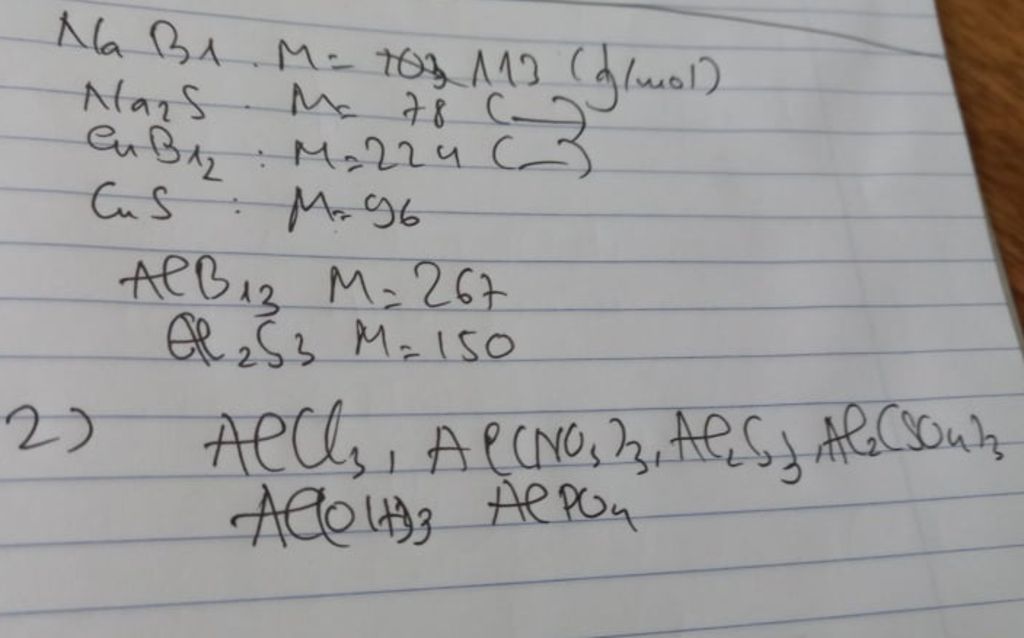 NaBr. M= 113 (g/mol)
Na2S . M= 78 (—)
CuBr2 : M=224 (—)
CuS : M=96
AlBr3 M=267
Al2S3 M=150
2) AlCl3, Al(NO3)3, Al2S3, Al2(SO4)3
Al(OH)3 AlPO4